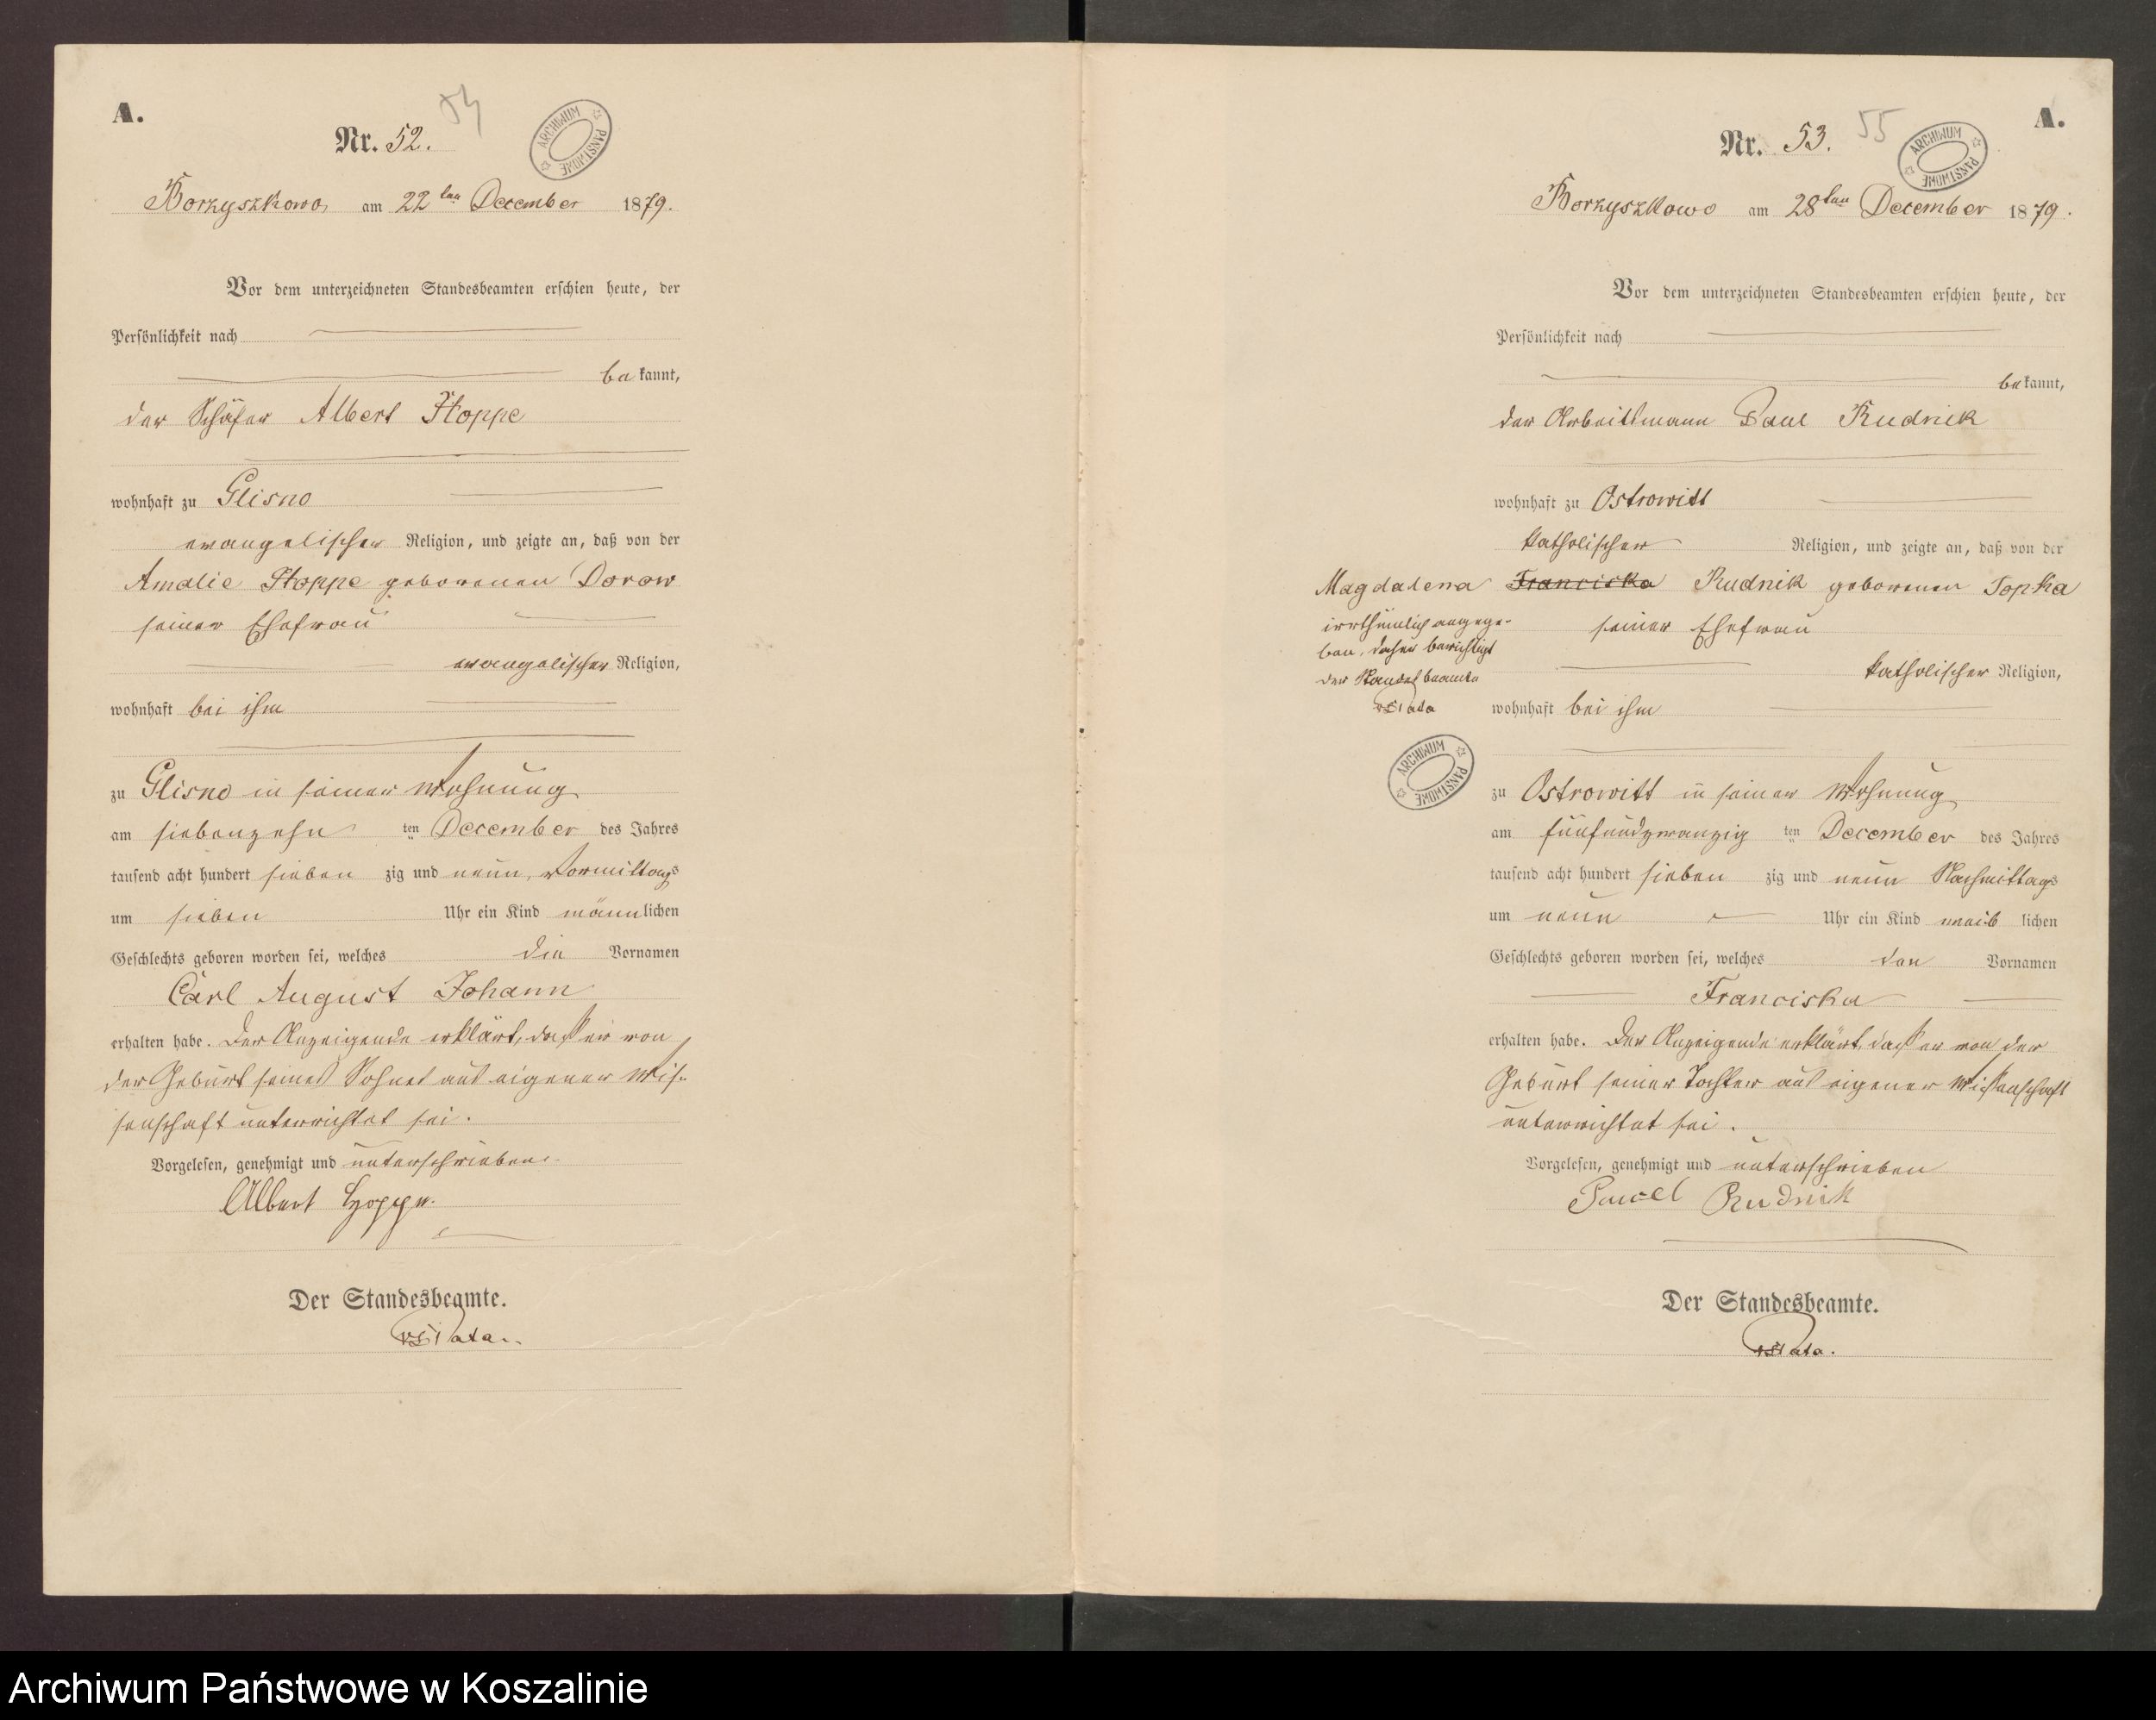 A.
Nr. 52.
54
ARCHIWUM PAŃSTWOWE
Borzyszkowo, am 22ten December 1879.
Vor dem unterzeichneten Standesbeamten erschien heute, der
Persönlichkeit nach
bekannt,
der Schäfer Albert Hoppe
wohnhaft zu Glisno
evangelischer Religion, und zeigte an, daß von der
Amalie Hoppe geborenen Dorow
seiner Ehefrau
evangelischer Religion,
wohnhaft bei ihm
zu Glisno in seiner Wohnung
am siebenzehn ten December des Jahres
tausend acht hundert sieben zig und neun, Vormittags
um sieben Uhr ein Kind männlichen
Geschlechts geboren worden sei, welches die Vornamen
Carl August Johann
erhalten habe. Der Anzeigende erklärt, daß er von
der Geburt seines Sohnes aus eigener Wis-
senschaft unterrichtet sei.
Vorgelesen, genehmigt und unterschrieben
Albert Hoppe.
Der Standesbeamte.
A.
Nr. 53.
55
ARCHIWUM PAŃSTWOWE
Borzyszkowo am 28ten December 1879.
Vor dem unterzeichneten Standesbeamten erschien heute, der
Persönlichkeit nach
bekannt,
der Arbeitsmann Paul Rudnik
wohnhaft zu Ostrowitt
katholischer Religion, und zeigte an, daß von der
Magdalena Franciska Rudnik geborenen Topka
irrthümlich angege-
ben, daher berichtigt
der Standesbeamte
seiner Ehefrau
katholischer Religion,
wohnhaft bei ihm
ARCHIWUM PAŃSTWOWE
zu Ostrowitt in seiner Wohnung
am fünfundzwanzig ten December des Jahres
tausend acht hundert sieben zig und neun Nachmittags
um neun Uhr ein Kind weib lichen
Geschlechts geboren worden sei, welches den Vornamen
Franciska
erhalten habe. Der Anzeigende erklärt, daß er von der
Geburt seiner Tochter aus eigener Wissenschaft
unterrichtet sei.
Vorgelesen, genehmigt und unterschrieben
Pawel Rudnik
Der Standesbeamte.
Archiwum Państwowe w Koszalinie